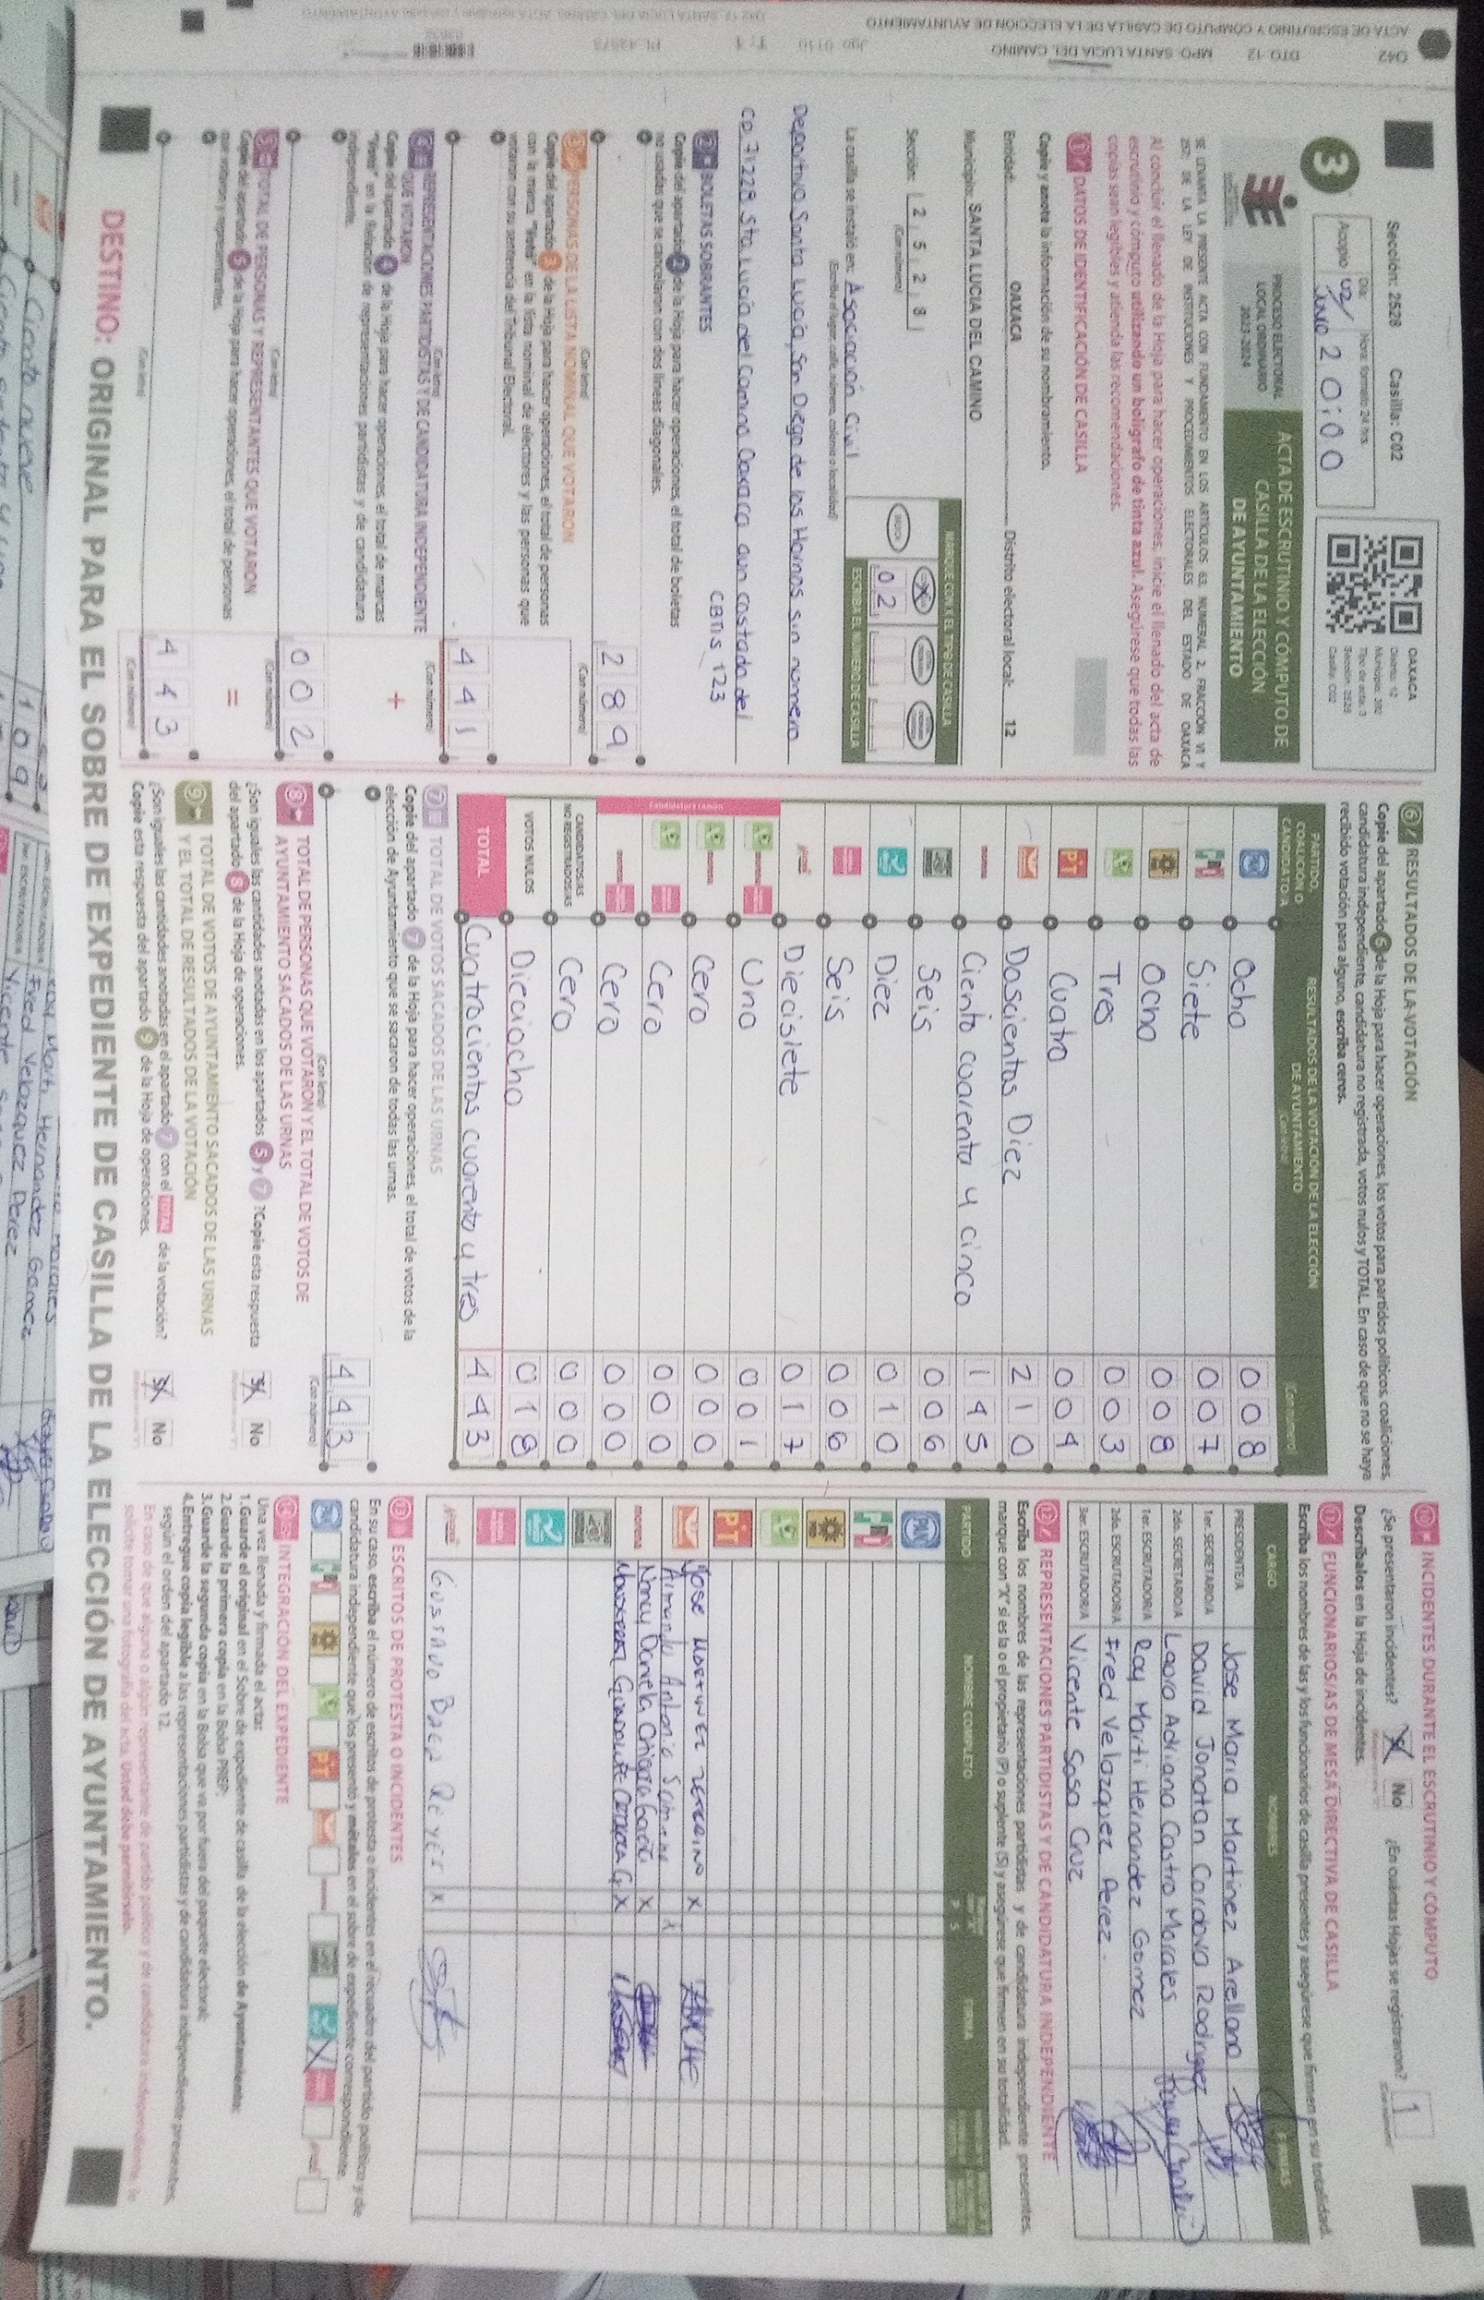 Sección: 2528 Casilla: C02
3
Acopio
Día: 02/Junio
Hora: formato 24 hrs.
20:00
OAXACA
Distrito: 12
Tipo de acta: 3
Sección: 2528
Casilla: C02
PROCESO ELECTORAL
LOCAL ORDINARIO
2023-2024
ACTA DE ESCRUTINIO Y CÓMPUTO DE
CASILLA DE LA ELECCIÓN
DE AYUNTAMIENTO
SE LEVANTA LA PRESENTE ACTA CON FUNDAMENTO EN LOS ARTÍCULOS 63, NUMERAL 2, FRACCIÓN VI Y
257; DE LA LEY DE INSTITUCIONES Y PROCEDIMIENTOS ELECTORALES DEL ESTADO DE OAXACA
Al concluir el llenado de la Hoja para hacer operaciones, inicie el llenado del acta de
escrutinio y cómputo utilizando un bolígrafo de tinta azul. Asegúrese que todas las
copias sean legibles y atienda las recomendaciones.
1 DATOS DE IDENTIFICACIÓN DE CASILLA
Copie y anote la información de su nombramiento.
Entidad: OAXACA Distrito electoral local: 12
Municipio: SANTA LUCIA DEL CAMINO
Sección: 2 5 2 8
(Con número)
MARQUE CON X EL TIPO DE CASILLA
ESCRIBA EL NÚMERO DE CASILLA
0 2
La casilla se instaló en: Asociación Civil
(Escriba el lugar, calle, número, colonia o localidad)
Deportivo Santa Lucia, San Diego de los Hornos sin numero
CP. 71228 Sta. Lucía del Camino Oaxaca aun costado del
CBTIS 123
2 BOLETAS SOBRANTES
Copie del apartado 2 de la Hoja para hacer operaciones, el total de boletas
no usadas que se cancelaron con dos líneas diagonales.
(Con letra)
(Con número)
2 8 9
3 PERSONAS DE LA LISTA NOMINAL QUE VOTARON
Copie del apartado 3 de la Hoja para hacer operaciones, el total de personas
con la marca "Votó" en la lista nominal de electores y las personas que
votaron con su sentencia del Tribunal Electoral.
(Con letra)
(Con número)
4 4 1
4 REPRESENTACIONES PARTIDISTAS Y DE CANDIDATURA INDEPENDIENTE
QUE VOTARON
+
Copie del apartado 4 de la Hoja para hacer operaciones, el total de marcas
"Votó" en la Relación de representaciones partidistas y de candidatura
independiente.
(Con letra)
(Con número)
0 0 2
5 TOTAL DE PERSONAS Y REPRESENTANTES QUE VOTARON
=
Copie del apartado 5 de la Hoja para hacer operaciones, el total de personas
que votaron y representantes.
(Con letra)
(Con número)
4 4 3
6 RESULTADOS DE LA VOTACIÓN
Copie del apartado 6 de la Hoja para hacer operaciones, los votos para partidos políticos, coaliciones,
candidatura independiente, candidatura no registrada, votos nulos y TOTAL. En caso de que no se haya
recibido votación para alguno, escriba ceros.
PARTIDO,
COALICIÓN O
CANDIDATO/A
RESULTADOS DE LA VOTACIÓN DE LA ELECCIÓN
DE AYUNTAMIENTO
(Con letra)
(Con número)
PAN Ocho 0 0 8
PRI Siete 0 0 7
Ocho 0 0 8
Tres 0 0 3
PT Cuatro 0 0 4
Doscientos Diez 2 1 0
morena Ciento cuarenta y cinco 1 4 5
Seis 0 0 6
Diez 0 1 0
Seis 0 0 6
Diecisiete 0 1 7
Candidatura común
Uno 0 0 1
Cero 0 0 0
Cero 0 0 0
Cero 0 0 0
CANDIDATOS/AS
NO REGISTRADOS/AS Cero 0 0 0
VOTOS NULOS Dieciocho 0 1 8
TOTAL Cuatrocientos cuarenta y tres 4 4 3
7 TOTAL DE VOTOS SACADOS DE LAS URNAS
Copie del apartado 7 de la Hoja para hacer operaciones, el total de votos de la
elección de Ayuntamiento que se sacaron de todas las urnas.
(Con letra)
(Con número)
4 4 3
8 TOTAL DE PERSONAS QUE VOTARON Y EL TOTAL DE VOTOS DE
AYUNTAMIENTO SACADOS DE LAS URNAS
¿Son iguales las cantidades anotadas en los apartados 5 y 7 ? Copie esta respuesta
del apartado 8 de la Hoja de operaciones.
Sí No
9 TOTAL DE VOTOS DE AYUNTAMIENTO SACADOS DE LAS URNAS
Y EL TOTAL DE RESULTADOS DE LA VOTACIÓN
¿Son iguales las cantidades anotadas en el apartado 7 con el TOTAL de la votación?
Copie esta respuesta del apartado 9 de la Hoja de operaciones.
Sí No
10 INCIDENTES DURANTE EL ESCRUTINIO Y CÓMPUTO
¿Se presentaron incidentes? Sí No ¿En cuántas Hojas se registraron? 1
Descríbalos en la Hoja de incidentes.
11 FUNCIONARIOS/AS DE MESA DIRECTIVA DE CASILLA
Escriba los nombres de las y los funcionarios de casilla presentes y asegúrese que firmen en su totalidad.
CARGO NOMBRES FIRMAS
PRESIDENTE/A Jose Maria Martinez Arellano
1er. SECRETARIO/A David Jonatan Cordova Rodriguez
2do. SECRETARIO/A Laoro Adriana Castro Morales
1er. ESCRUTADOR/A Roy Marti Hernandez Gomez
2do. ESCRUTADOR/A Fred Velazquez Perez.
3er. ESCRUTADOR/A Vicente Sosa Cruz
12 REPRESENTACIONES PARTIDISTAS Y DE CANDIDATURA INDEPENDIENTE
Escriba los nombres de las representaciones partidistas y de candidatura independiente presentes,
marque con "X" si es la o el propietario (P) o suplente (S) y asegúrese que firmen en su totalidad.
PARTIDO NOMBRE COMPLETO P S FIRMA
PAN
PRI
PRD
PT
Jose Martinez x
Armando Antonio x
morena Nancy Daniela x
x
GUSTAVO BAEZ REYES x
13 ESCRITOS DE PROTESTA O INCIDENTES
En su caso, escriba el número de escritos de protesta o incidentes en el recuadro del partido político y de
candidatura independiente que los presentó y métalos en el sobre de expediente correspondiente.
PAN PRI PT X
14 INTEGRACIÓN DEL EXPEDIENTE
Una vez llenada y firmada el acta:
1. Guarde el original en el Sobre de expediente de casilla de la elección de Ayuntamiento;
2. Guarde la primera copia en la Bolsa PREP;
3. Guarde la segunda copia en la Bolsa que va por fuera del paquete electoral;
4. Entregue copia legible a las representaciones partidistas y de candidatura independiente presentes,
según el orden del apartado 12.
En caso de que alguna o algún representante de partido político y de candidatura independiente, le
solicite tomar una fotografía del acta, Usted debe permitírselo.
DESTINO: ORIGINAL PARA EL SOBRE DE EXPEDIENTE DE CASILLA DE LA ELECCIÓN DE AYUNTAMIENTO.
042 DTO 12 MPO SANTA LUCIA DEL CAMINO
ACTA DE ESCRUTINIO Y COMPUTO DE CASILLA DE LA ELECCION DE AYUNTAMIENTO
Ciento nueve
1 0 9
Roy Marti Hernandez Gomez
Fred Velazquez Perez
Vicente